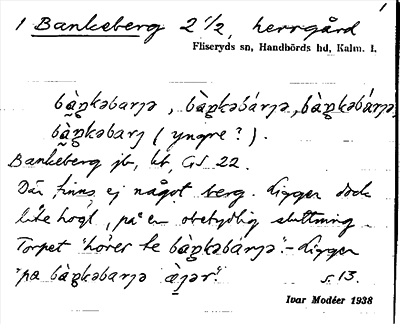 1
1 Bankeberg 2 1/2, herrgård
Fliseryds sn, Handbörds hd, Kalm. l.
bàŋkəbarjə, bàŋkəbárjə, bàŋkəbárjə,
bàŋkəbarj (yngre?).
Bankeberg jb, kt, GS 22.
Där finns ej något berg. Ligger dock
lite högt, på en obetydlig sluttning.
Torpet "hörer te bàŋkəbárjə". – Ligger
"pa bàŋkəbarjə ä̀jər". s. 13.
Ivar Modéer 1938